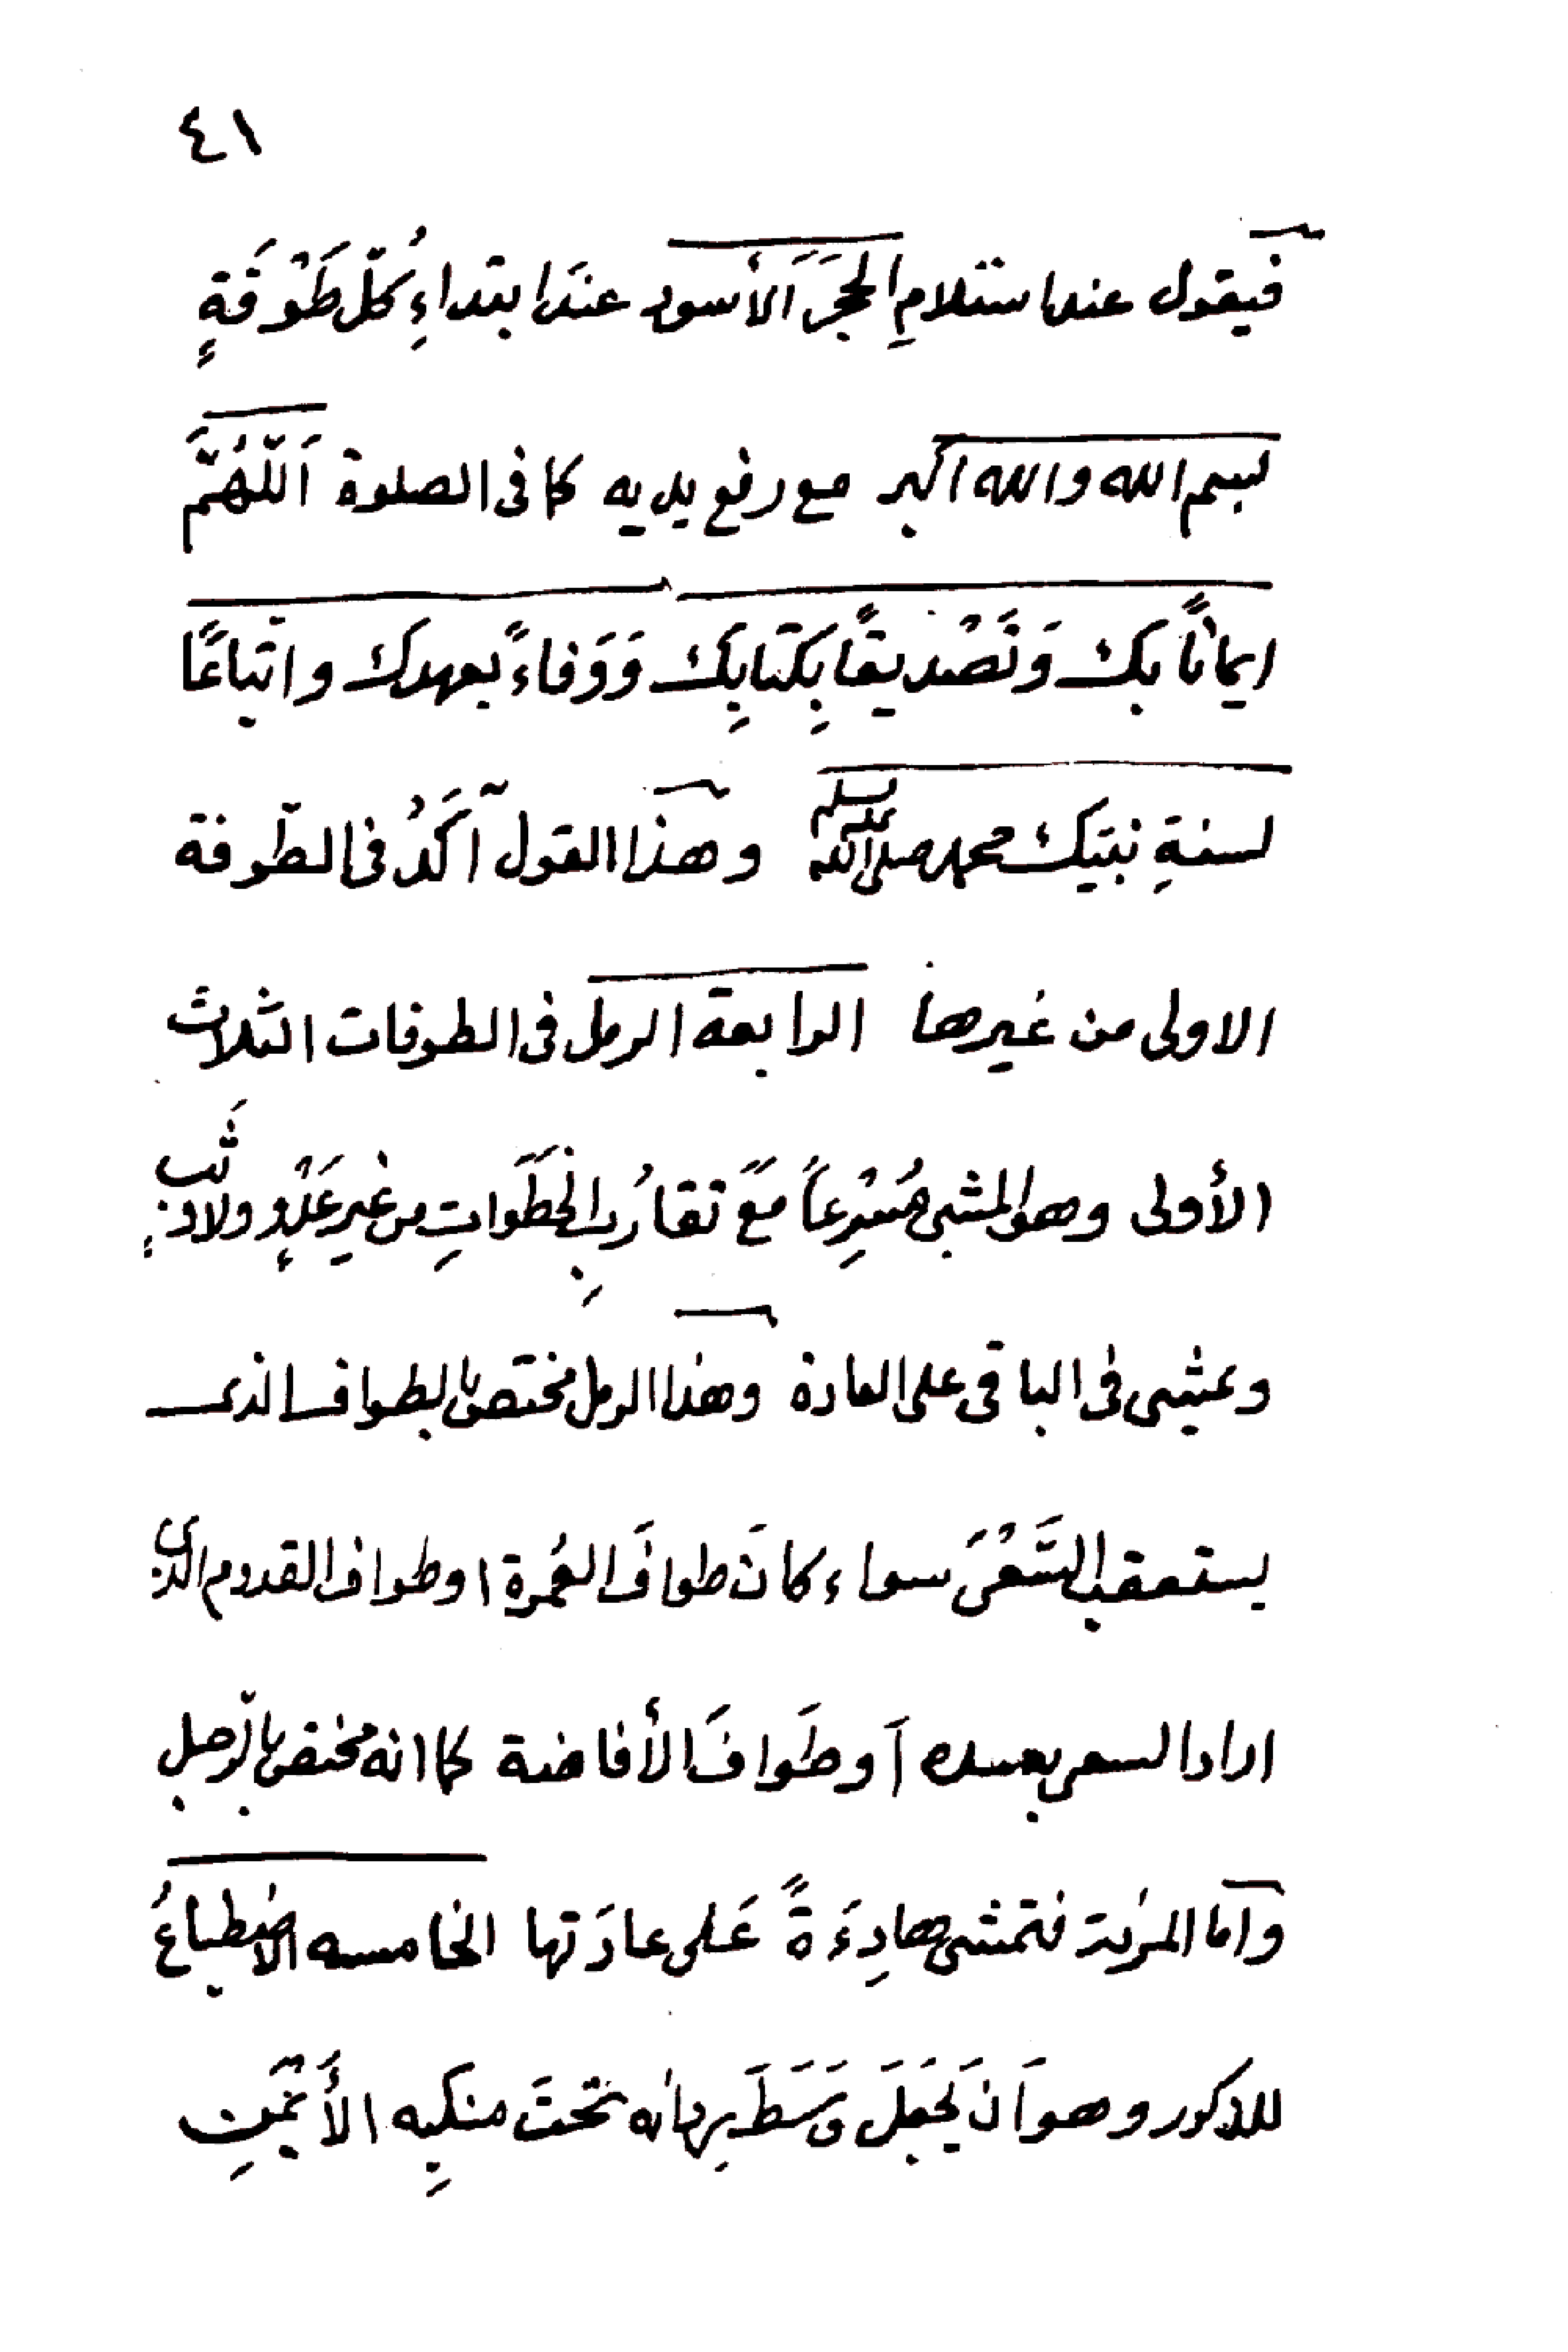 ٤١
فيقول عند استلامِ الحجَرَ الأسود عندَ ابتداءِ كُلّ طَوْفَةٍ
بسم الله والله اكبر مع رفع يديه كما فى الصلوة اَللّهُمَّ
ايمانًا بك وَتَصْديقًا بِكتابِكَ وَوَفاءً بعهدك واتّباعًا
لسنةِ نبيّك محمد صلى الله عليه وسلم وهذا القول آكَدُ فى الطّوفة
الاولى من غيرها الرابعة الرمل فى الطوفات الثلاث
الأولى وهو المشى مُسْرِعاً مَعَ تقارُبِ الخَطَوَاتِ من غيرِ عَدْوٍ ولا وَثْبٍ
ويمشى فى الباقى على العادة وهذا الرمل مختص بالطواف الذى
يستعقب السَّعْىَ سواء كانَ طوافَ العُمرة او طواف القدوم الذى
اراد السعى بعده أو طَوافَ الأفاضة كما انه مختص بالرّجل
واما المرئة فتمشى هادِءَةً عَلى عادَتها الخامسه الاضطباعُ
للذكور وهو اَن يَجعَلَ وَسَطَ رِدائه تحتَ منكِبه الأَيْمَنِ